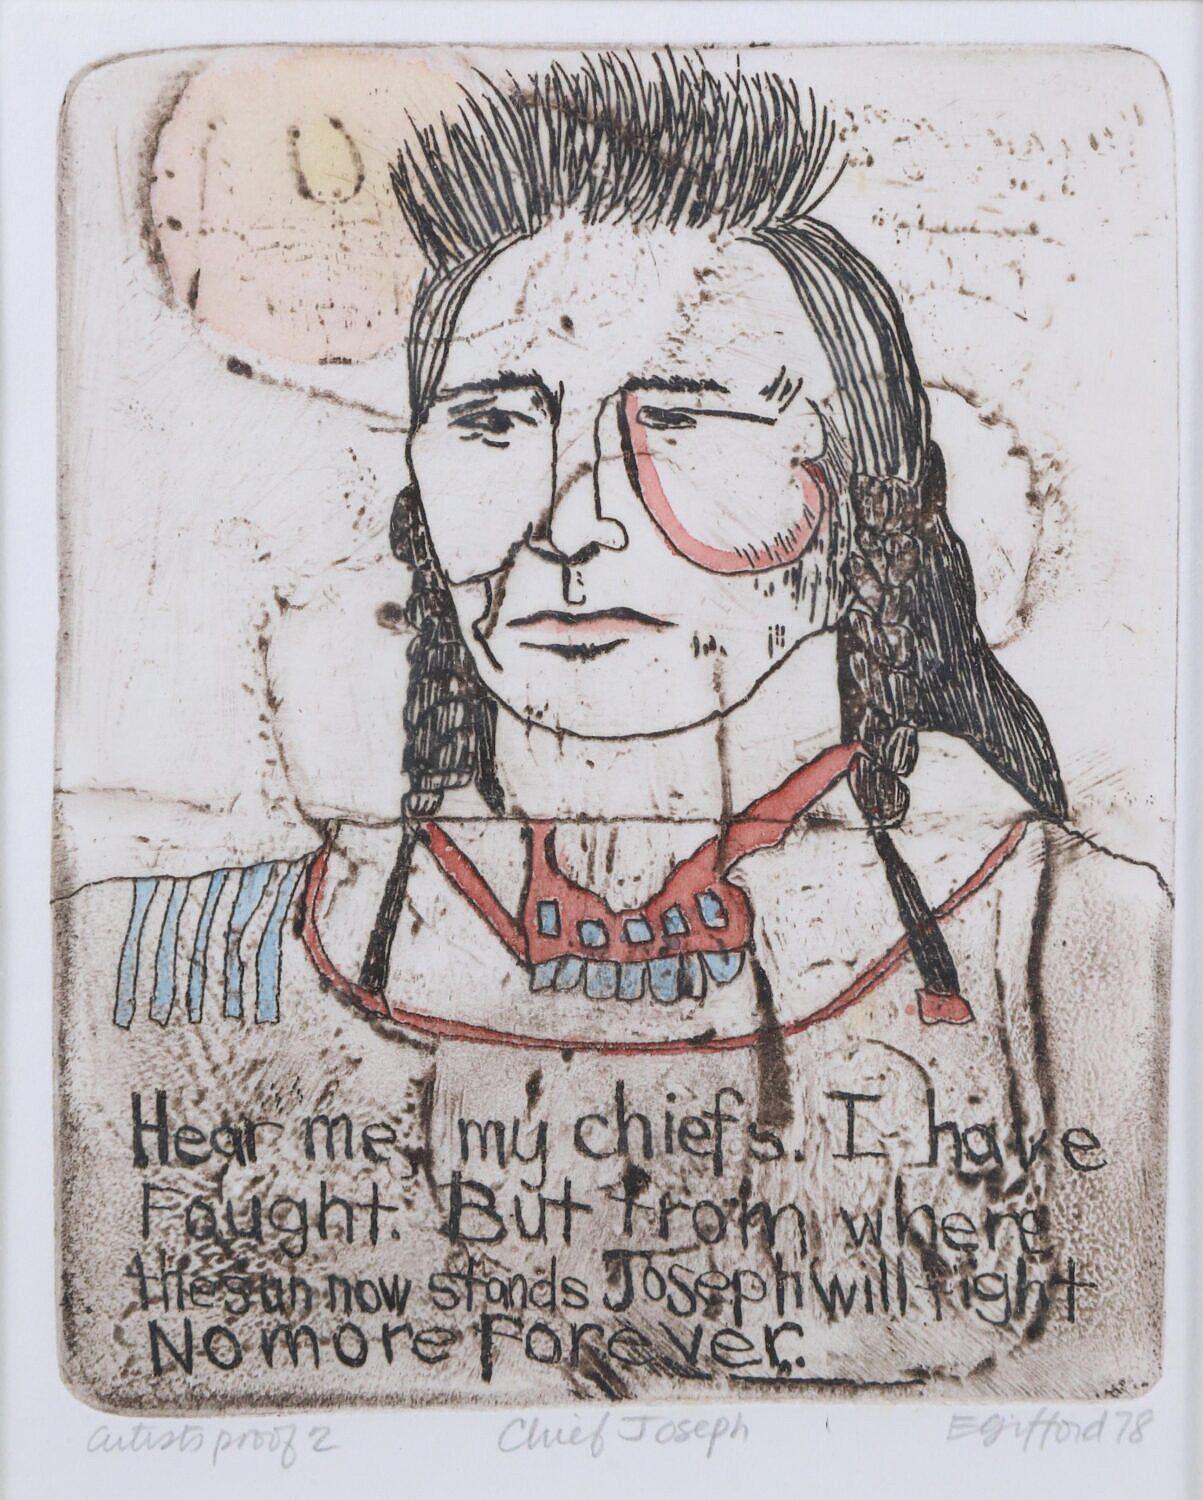 Hear me, my chiefs. I have
Fought. But from where
the sun now stands Joseph will fight
No more Forever.
artists proof 2 Chief Joseph E Gifford 78